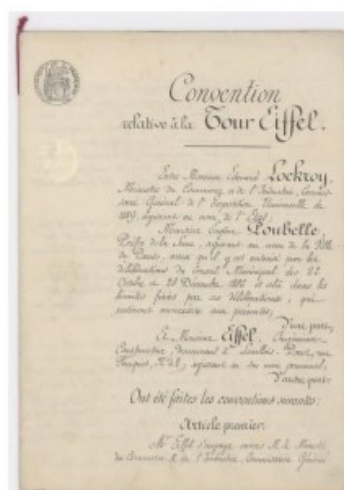 Convention
relative à la Tour Eiffel.
Entre Monsieur Edouard Lockroy,
Ministre du Commerce et de l'Industrie, Commis-
saire Général de l'Exposition Universelle de
1889, agissant au nom de l'Etat;
Monsieur Eugène Poubelle,
Préfet de la Seine, agissant au nom de la Ville
de Paris, ainsi qu'il y est autorisé par les
délibérations du Conseil Municipal des 22
Octobre et 28 Décembre 1886 et cela dans les
limites fixées par ces délibérations, qui
resteront annexées aux présentes;
D'une part,
Et Monsieur Eiffel, Ingénieur-
Constructeur, demeurant à Levallois-Perret, rue
Fouquet, N° 42, agissant en son nom personnel,
D'autre part.
Ont été faites les conventions suivantes:
Article premier.
Mr Eiffel s'engage envers M. le Ministre
du Commerce et de l'Industrie, Commissaire Général